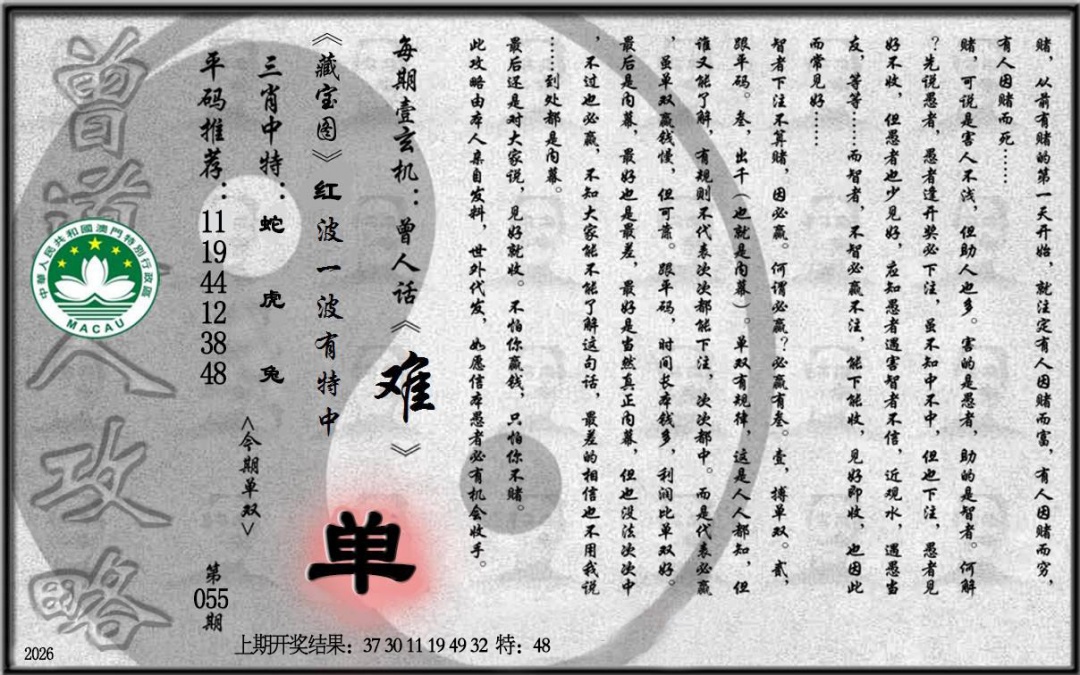 赌，从前有赌的第一天开始，就注定有人因赌而富，有人因赌而穷，
有人因赌而死……
赌，可说是害人不浅，但助人也多。害的是愚者，助的是智者。何解
？先说愚者，愚者逢开奖必下注，虽不知中不中，但也下注，愚者见
好不收，但愚者也少见好，应知愚者遇害智者不信，近观水，遇愚当
友，等等……而智者，不智必赢不注，能下能收，见好即收，也因此
而常见好……
智者下注不算赌，因必赢。何谓必赢？必赢有叁。壹，搏单双。贰，
跟单码。叁，出千（也就是内幕）。单双有规律，这是人人都知，但
谁又能了解，有规则不代表次次都能下注，次次都中。而是代表必赢
，虽单双赢钱慢，但可靠。跟单码，时间长本钱多，利润比单双好。
最后是内幕，最好也是最差，最好是当然真正内幕，但也没法次次中
，不过也必赢，不知大家能不能了解这句话，最差的相信也不用我说
……到处都是内幕。
最后还是对大家说，见好就收。不怕你赢钱，只怕你不赌。
此攻略由本人亲自发料，世外代发，如愿信本愚者必有机会收手。
每期壹玄机：曾人话《难》
《藏宝图》红波一波有特中
三肖中特：蛇 虎 兔
平码推荐：11 19 44 12 38 48
<今期单双>
单
第055期
曾道人攻略
中華人民共和國澳門特別行政區
MACAU
上期开奖结果：37 30 11 19 49 32 特：48
2026